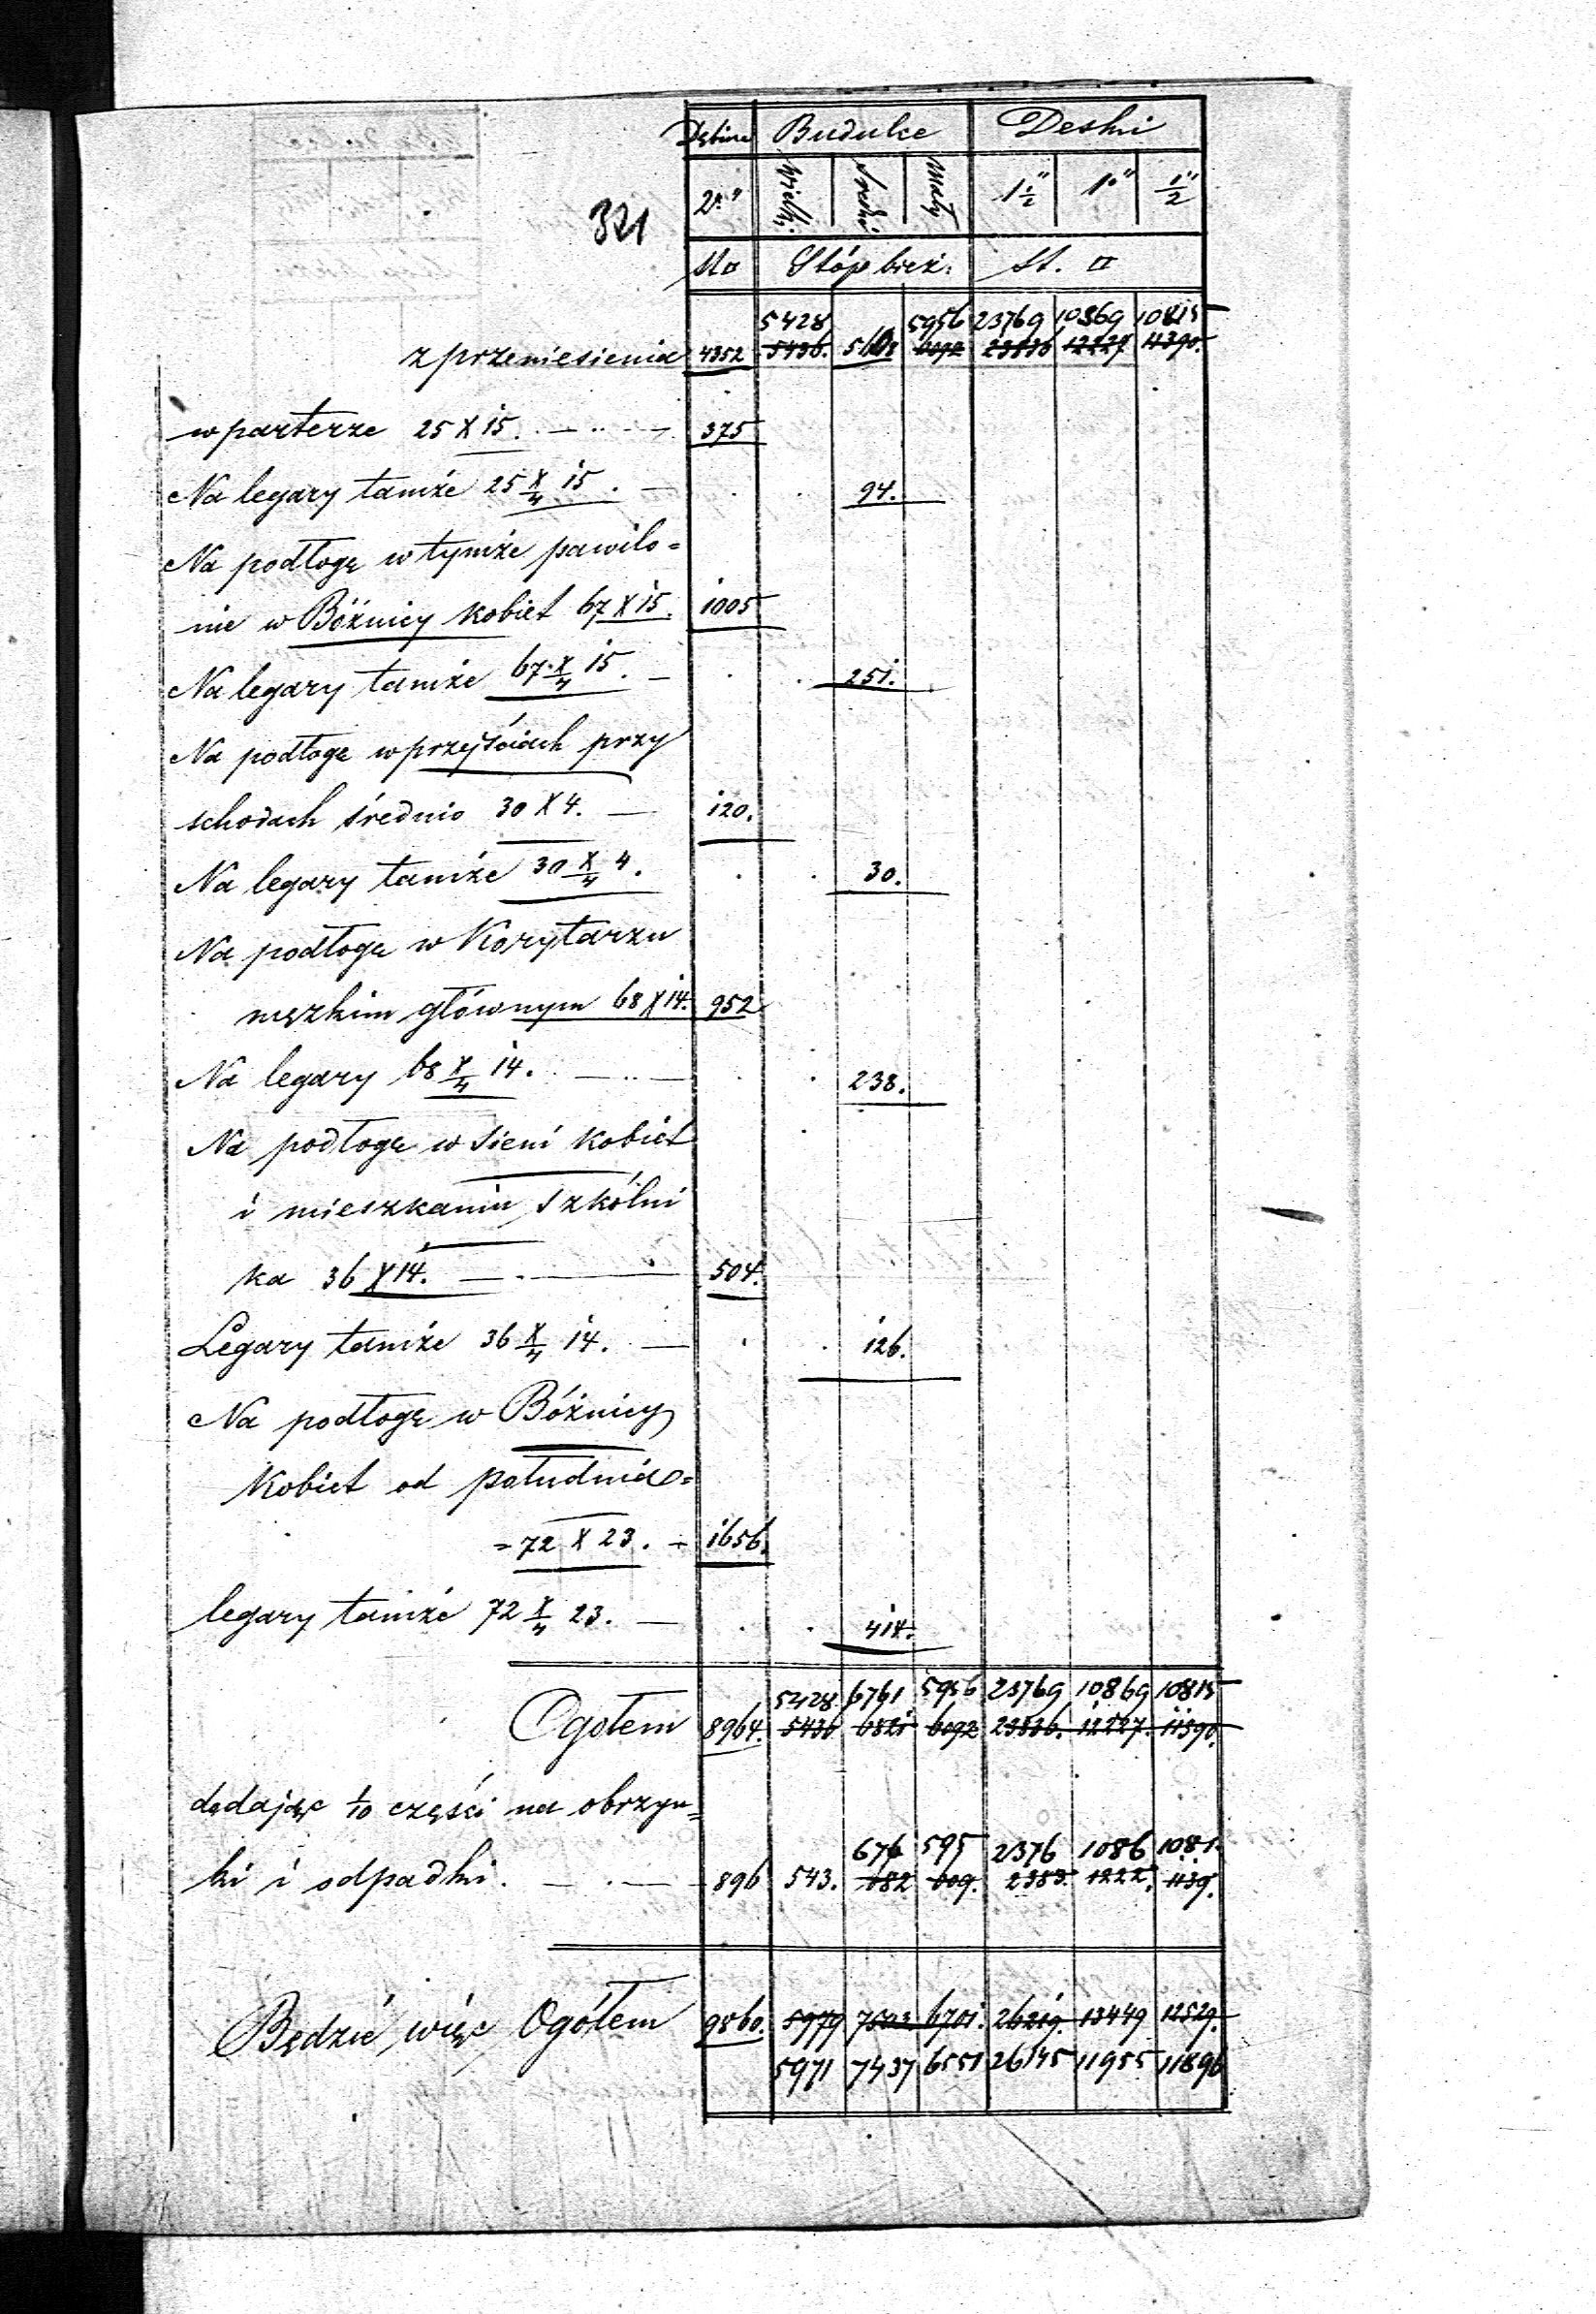 Dębina Budulce Deski
321 2" Wielki Średni Mały 1½" 1" ½"
St□ Stóp bież: St. □
5428 5956 23769 10869 10815
z przeniesienia 4352 5436. 5608 6092 23836 12227 11390.
w parterze 25 X 15. 375
Na legary tamże 25 X/4 15. 94.
Na podłogę w tymże pawilo=
nie w Bóżnicy kobiet 67 X 15. 1005
Na legary tamże 67 X/4 15. 251.
Na podłogę w przejściach przy
schodach średnio 30 X 4. 120.
Na legary tamże 30 X/4 4. 30.
Na podłogę w Korytarzu
męzkim głównym 68 X 14. 952
Na legary 68 X/4 14. 238.
Na podłogę w sieni kobiet
i mieszkaniu szkólni
ka 36 X 14. 504.
Legary tamże 36 X/4 14. 126.
Na podłogę w Bóżnicy
Kobiet od południa=
=72 X 23. 1656.
legary tamże 72 X/4 23. 414.
5428 6761 5956 23769 10869 10815
Ogółem 8964. 5436 6821 6092 23836. 12227. 11390.
dodając 1/10 części na obrzyn=
676 595 2376 1086 1081.
ki i odpadki. 896 543. 682 609. 2383. 1222. 1139.
Będzie więc Ogółem 9860. 5979 7503 6701. 26219. 13449 12529.
5971 7437 6551 26145 11955 11896